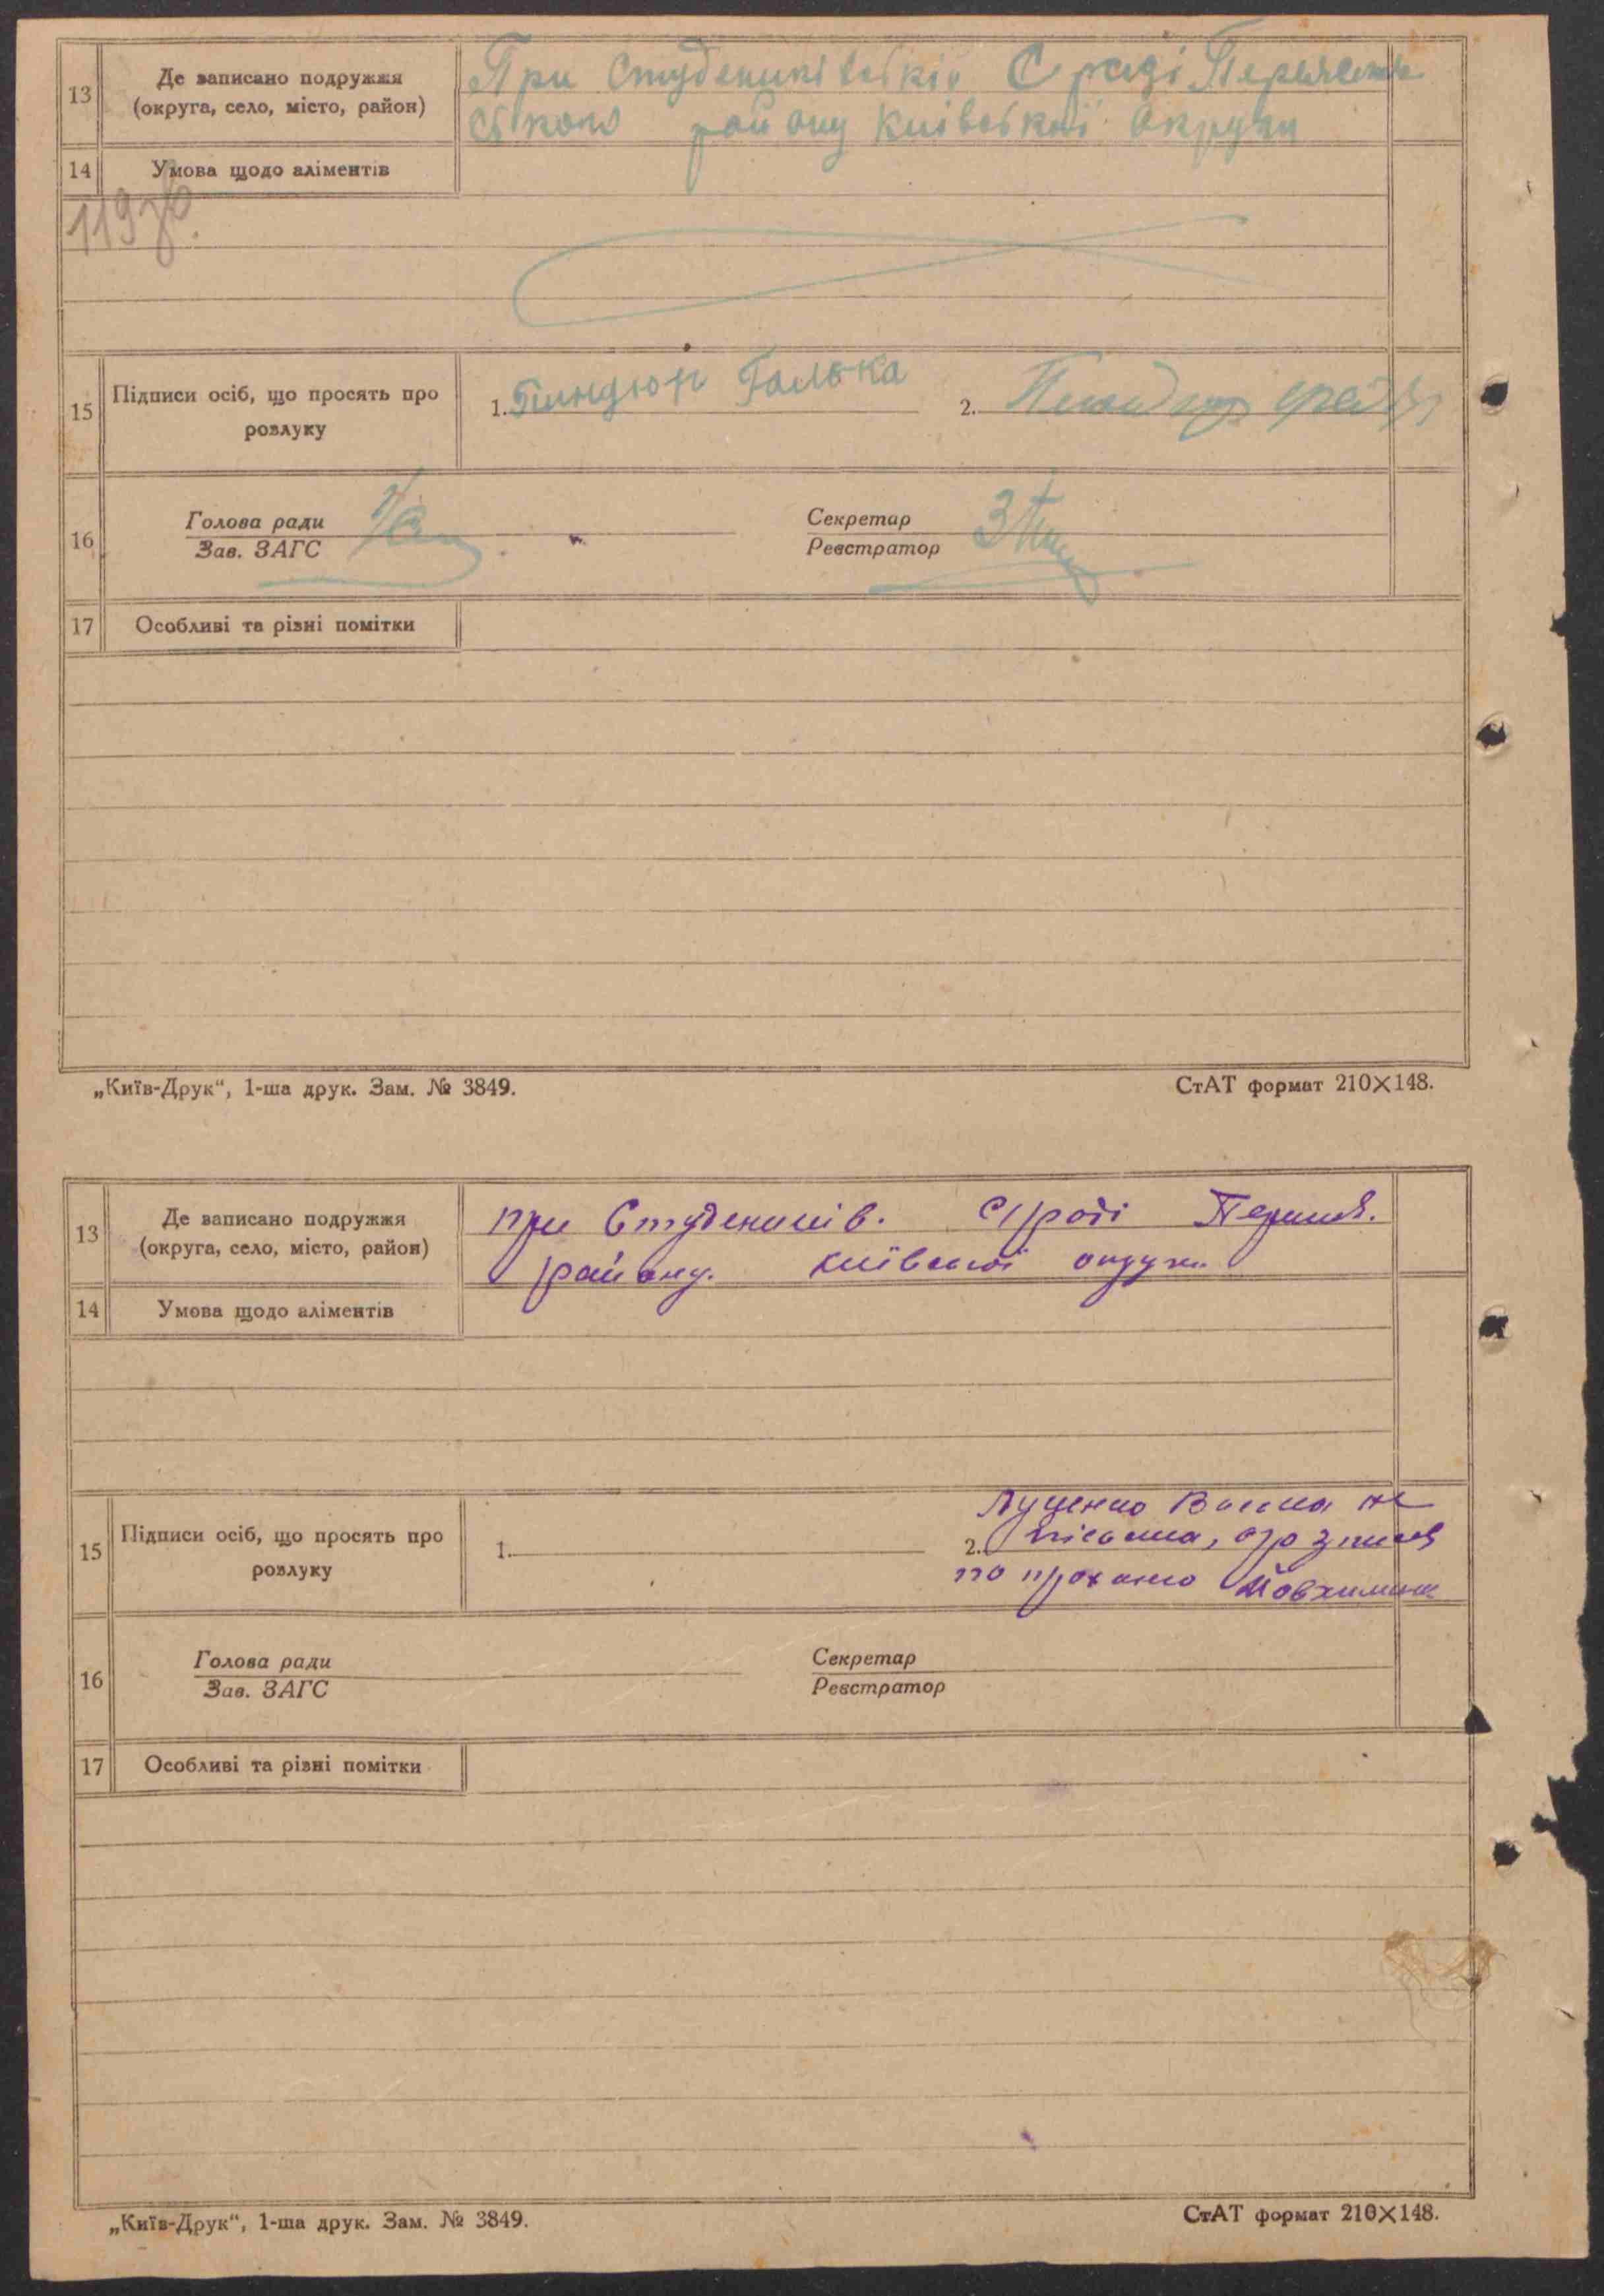 13
Де записано подружжя
(округа, село, місто, район)
При Студениківській С раді Переяслав
ського району Київської округи
14
Умова щодо аліментів
119зв.
15
Підписи осіб, що просять про
розлуку
1. Галька
2.
16
Голова ради
Зав. ЗАГС
Секретар
Реєстратор
17
Особливі та різні помітки
„Київ-Друк“, 1-ша друк. Зам. № 3849.
СтАТ формат 210×148.
13
Де записано подружжя
(округа, село, місто, район)
при Студеників. С/раді Переясл.
району. Київської округи
14
Умова щодо аліментів
15
Підписи осіб, що просять про
розлуку
1.
Луценко не
2. письмена,
по проханню
16
Голова ради
Зав. ЗАГС
Секретар
Реєстратор
17
Особливі та різні помітки
„Київ-Друк“, 1-ша друк. Зам. № 3849.
СтАТ формат 210×148.